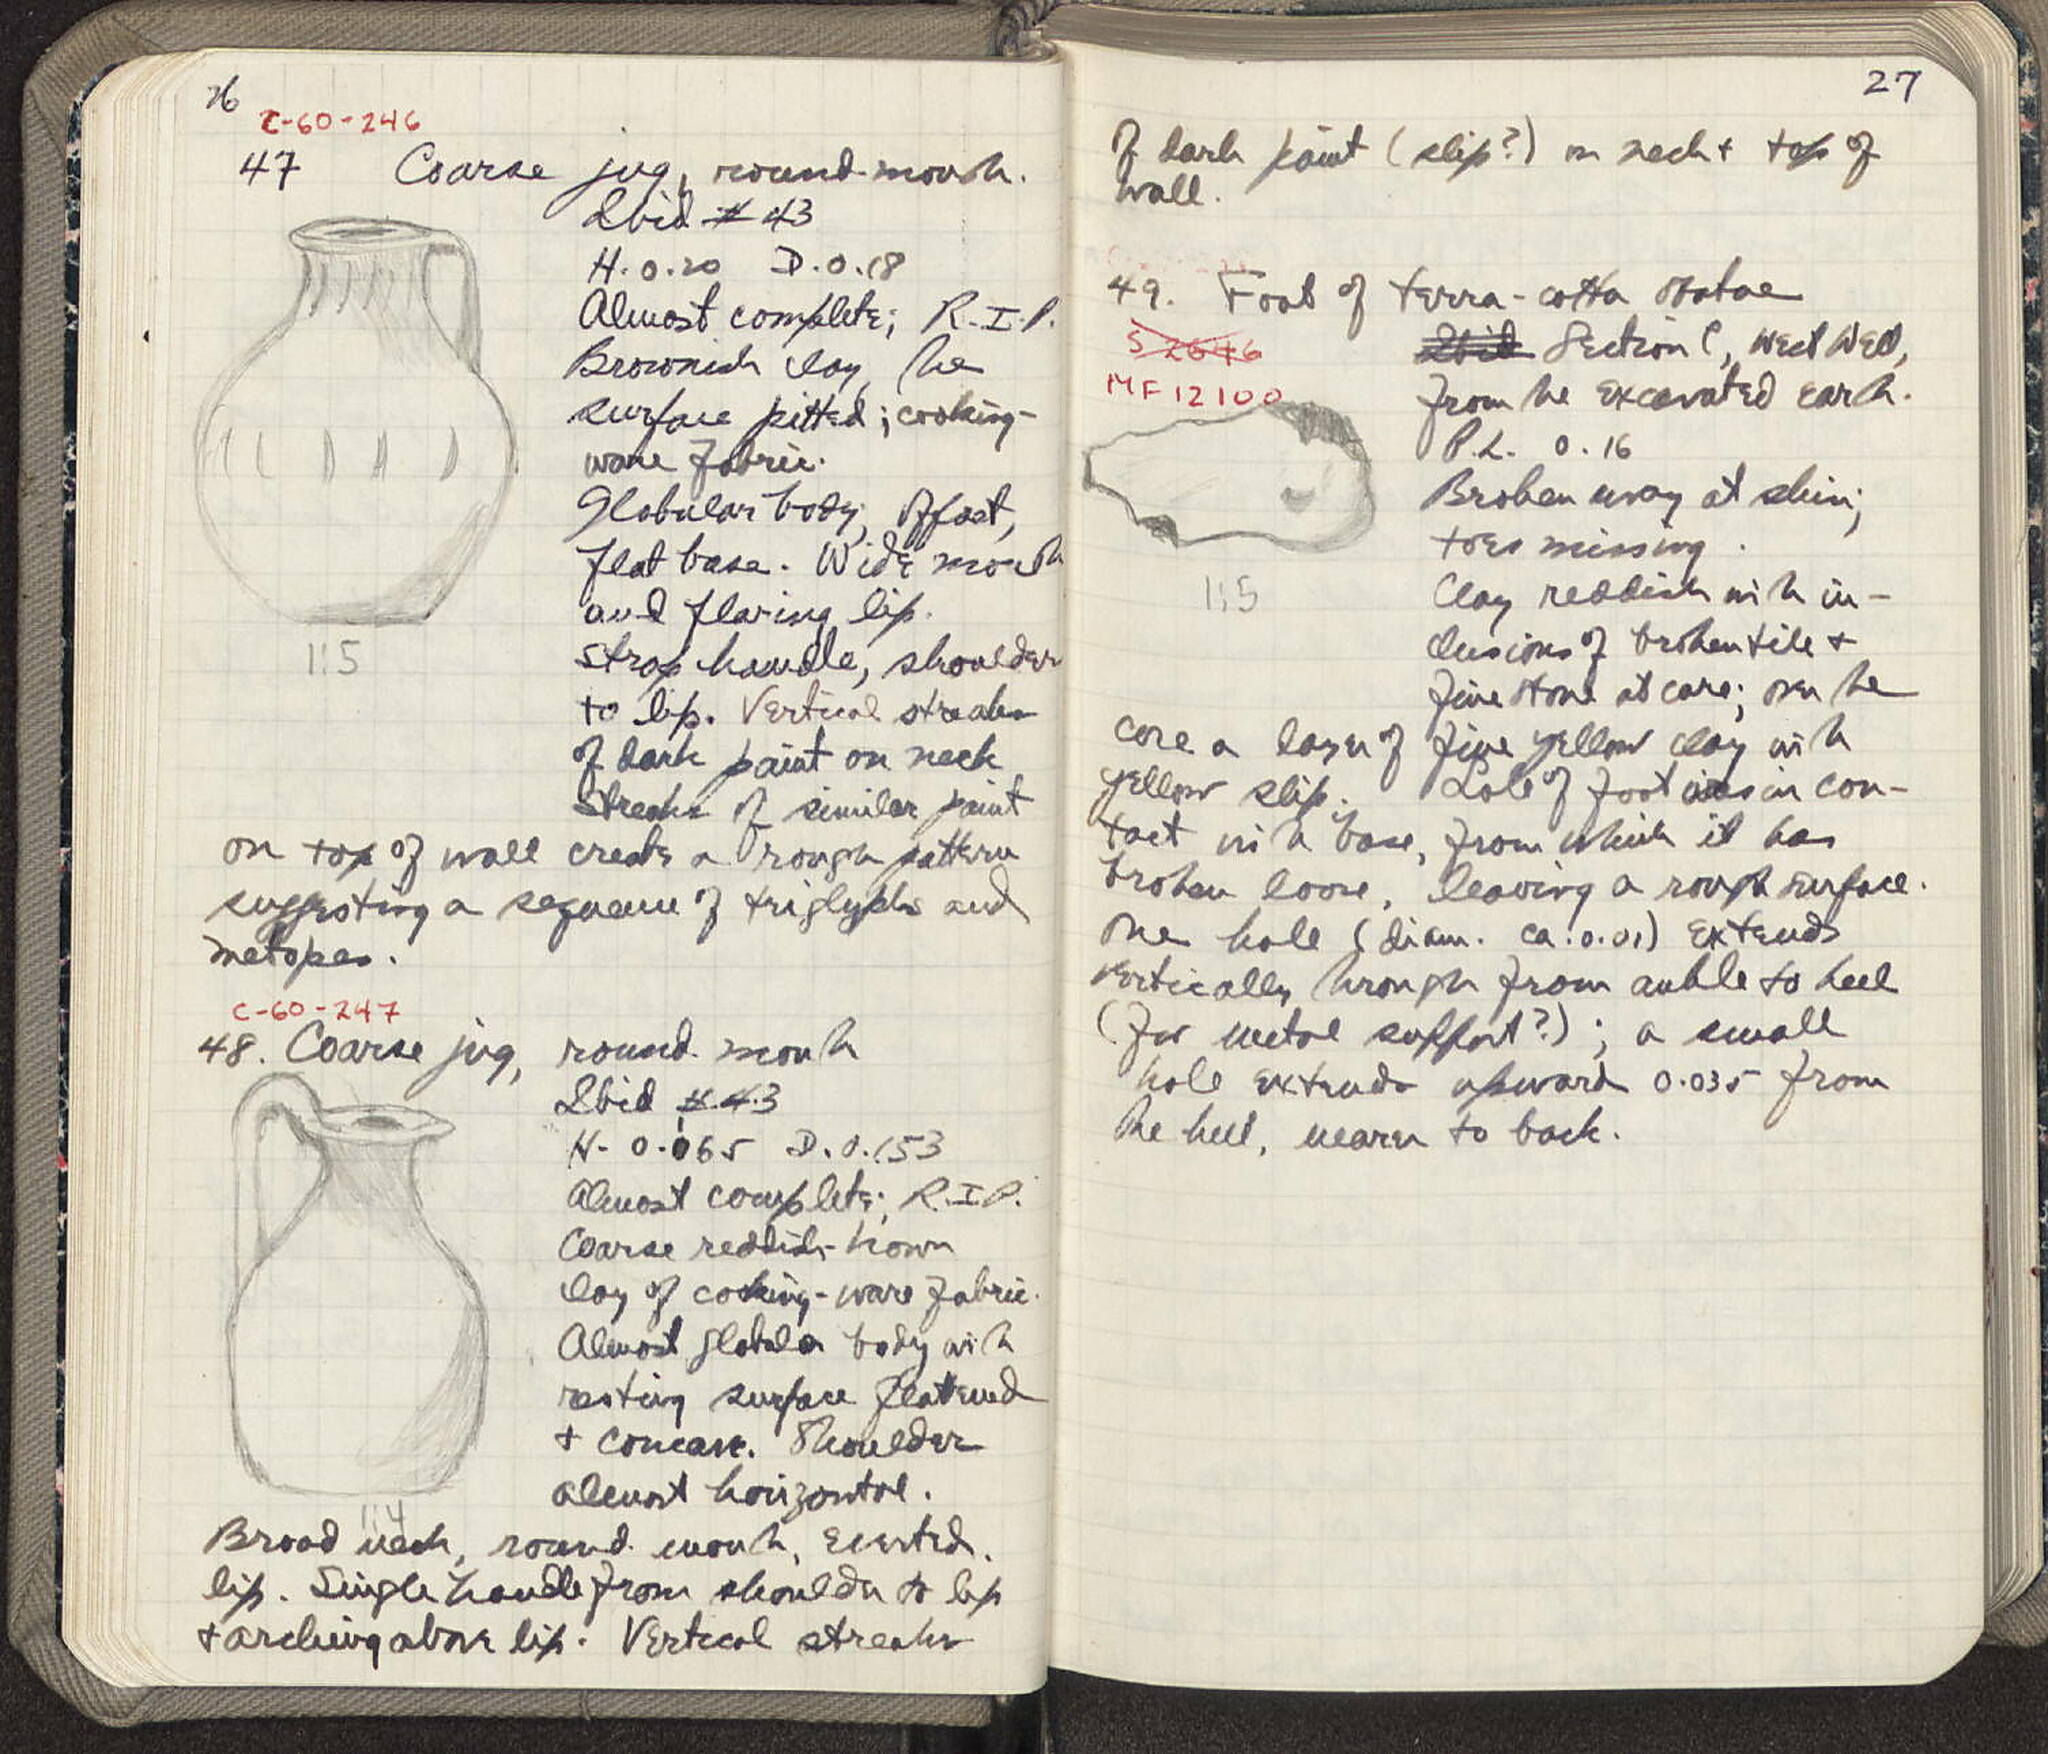 26
C-60-246
47 Coarse jug, round mouth.
Ibid #43
H. 0.20 D. 0.18
Almost complete; R.I.P.
Brownish clay, the
surface pitted; cooking-
ware fabric.
Globular body, offset,
flat base. Wide mouth
and flaring lip.
Strap handle, shoulder
to lip. Vertical streaks
of dark paint on neck
Streaks of similar paint
on top of wall create a rough pattern
suggesting a sequence of triglyphs and
metopes.
C-60-247
48. Coarse jug, round mouth
Ibid #43
H. 0.065 D. 0.153
Almost complete; R.I.P.
Coarse reddish-brown
clay of cooking-ware fabric.
Almost globular body with
resting surface flattened
+ concave. Shoulder
almost horizontal.
Broad neck, round mouth, everted
lip. Single handle from shoulder to lip
+ arching above lip. Vertical streaks
1:5
1:4
27
of dark paint (slip?) on neck + top of
wall.
49. Foot of terra-cotta statue
S 2646
MF 12100
Ibid Section C, West Well,
from the excavated earth.
P.L. 0.16
Broken away at shin;
toes missing.
Clay reddish with in-
clusions of broken tile +
fine stone at core; over the
core a layer of fine yellow clay with
yellow slip. Sole of foot was in con-
tact with base, from which it has
broken loose, leaving a rough surface.
One hole (diam. ca. 0.01) extends
vertically through from ankle to heel
(for metal support?); a small
hole extends upward 0.035 from
the heel, nearer to back.
1:5